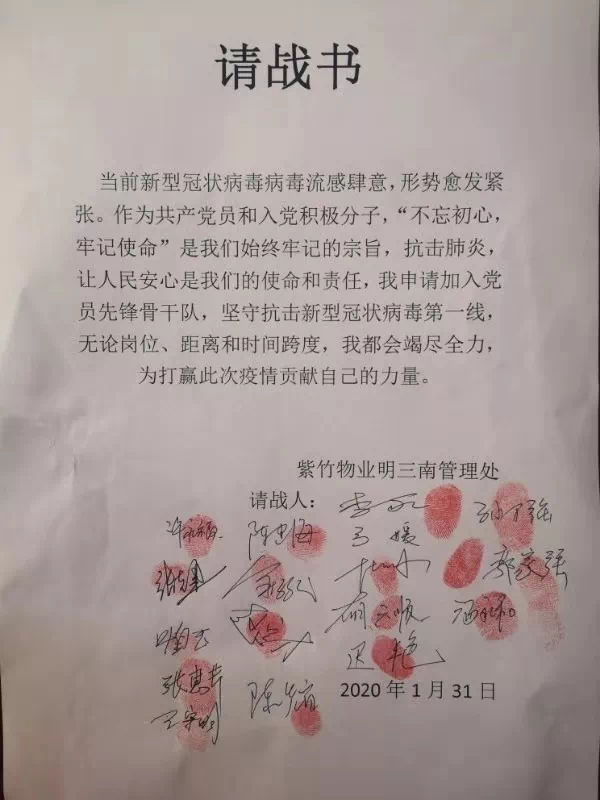 请战书
当前新型冠状病毒病毒流感肆意，形势愈发紧
张。作为共产党员和入党积极分子，“不忘初心，
牢记使命”是我们始终牢记的宗旨，抗击肺炎，
让人民安心是我们的使命和责任，我申请加入党
员先锋骨干队，坚守抗击新型冠状病毒第一线，
无论岗位、距离和时间跨度，我都会竭尽全力，
为打赢此次疫情贡献自己的力量。
紫竹物业明三南管理处
请战人：
马媛
张惠芳
2020年1月31日